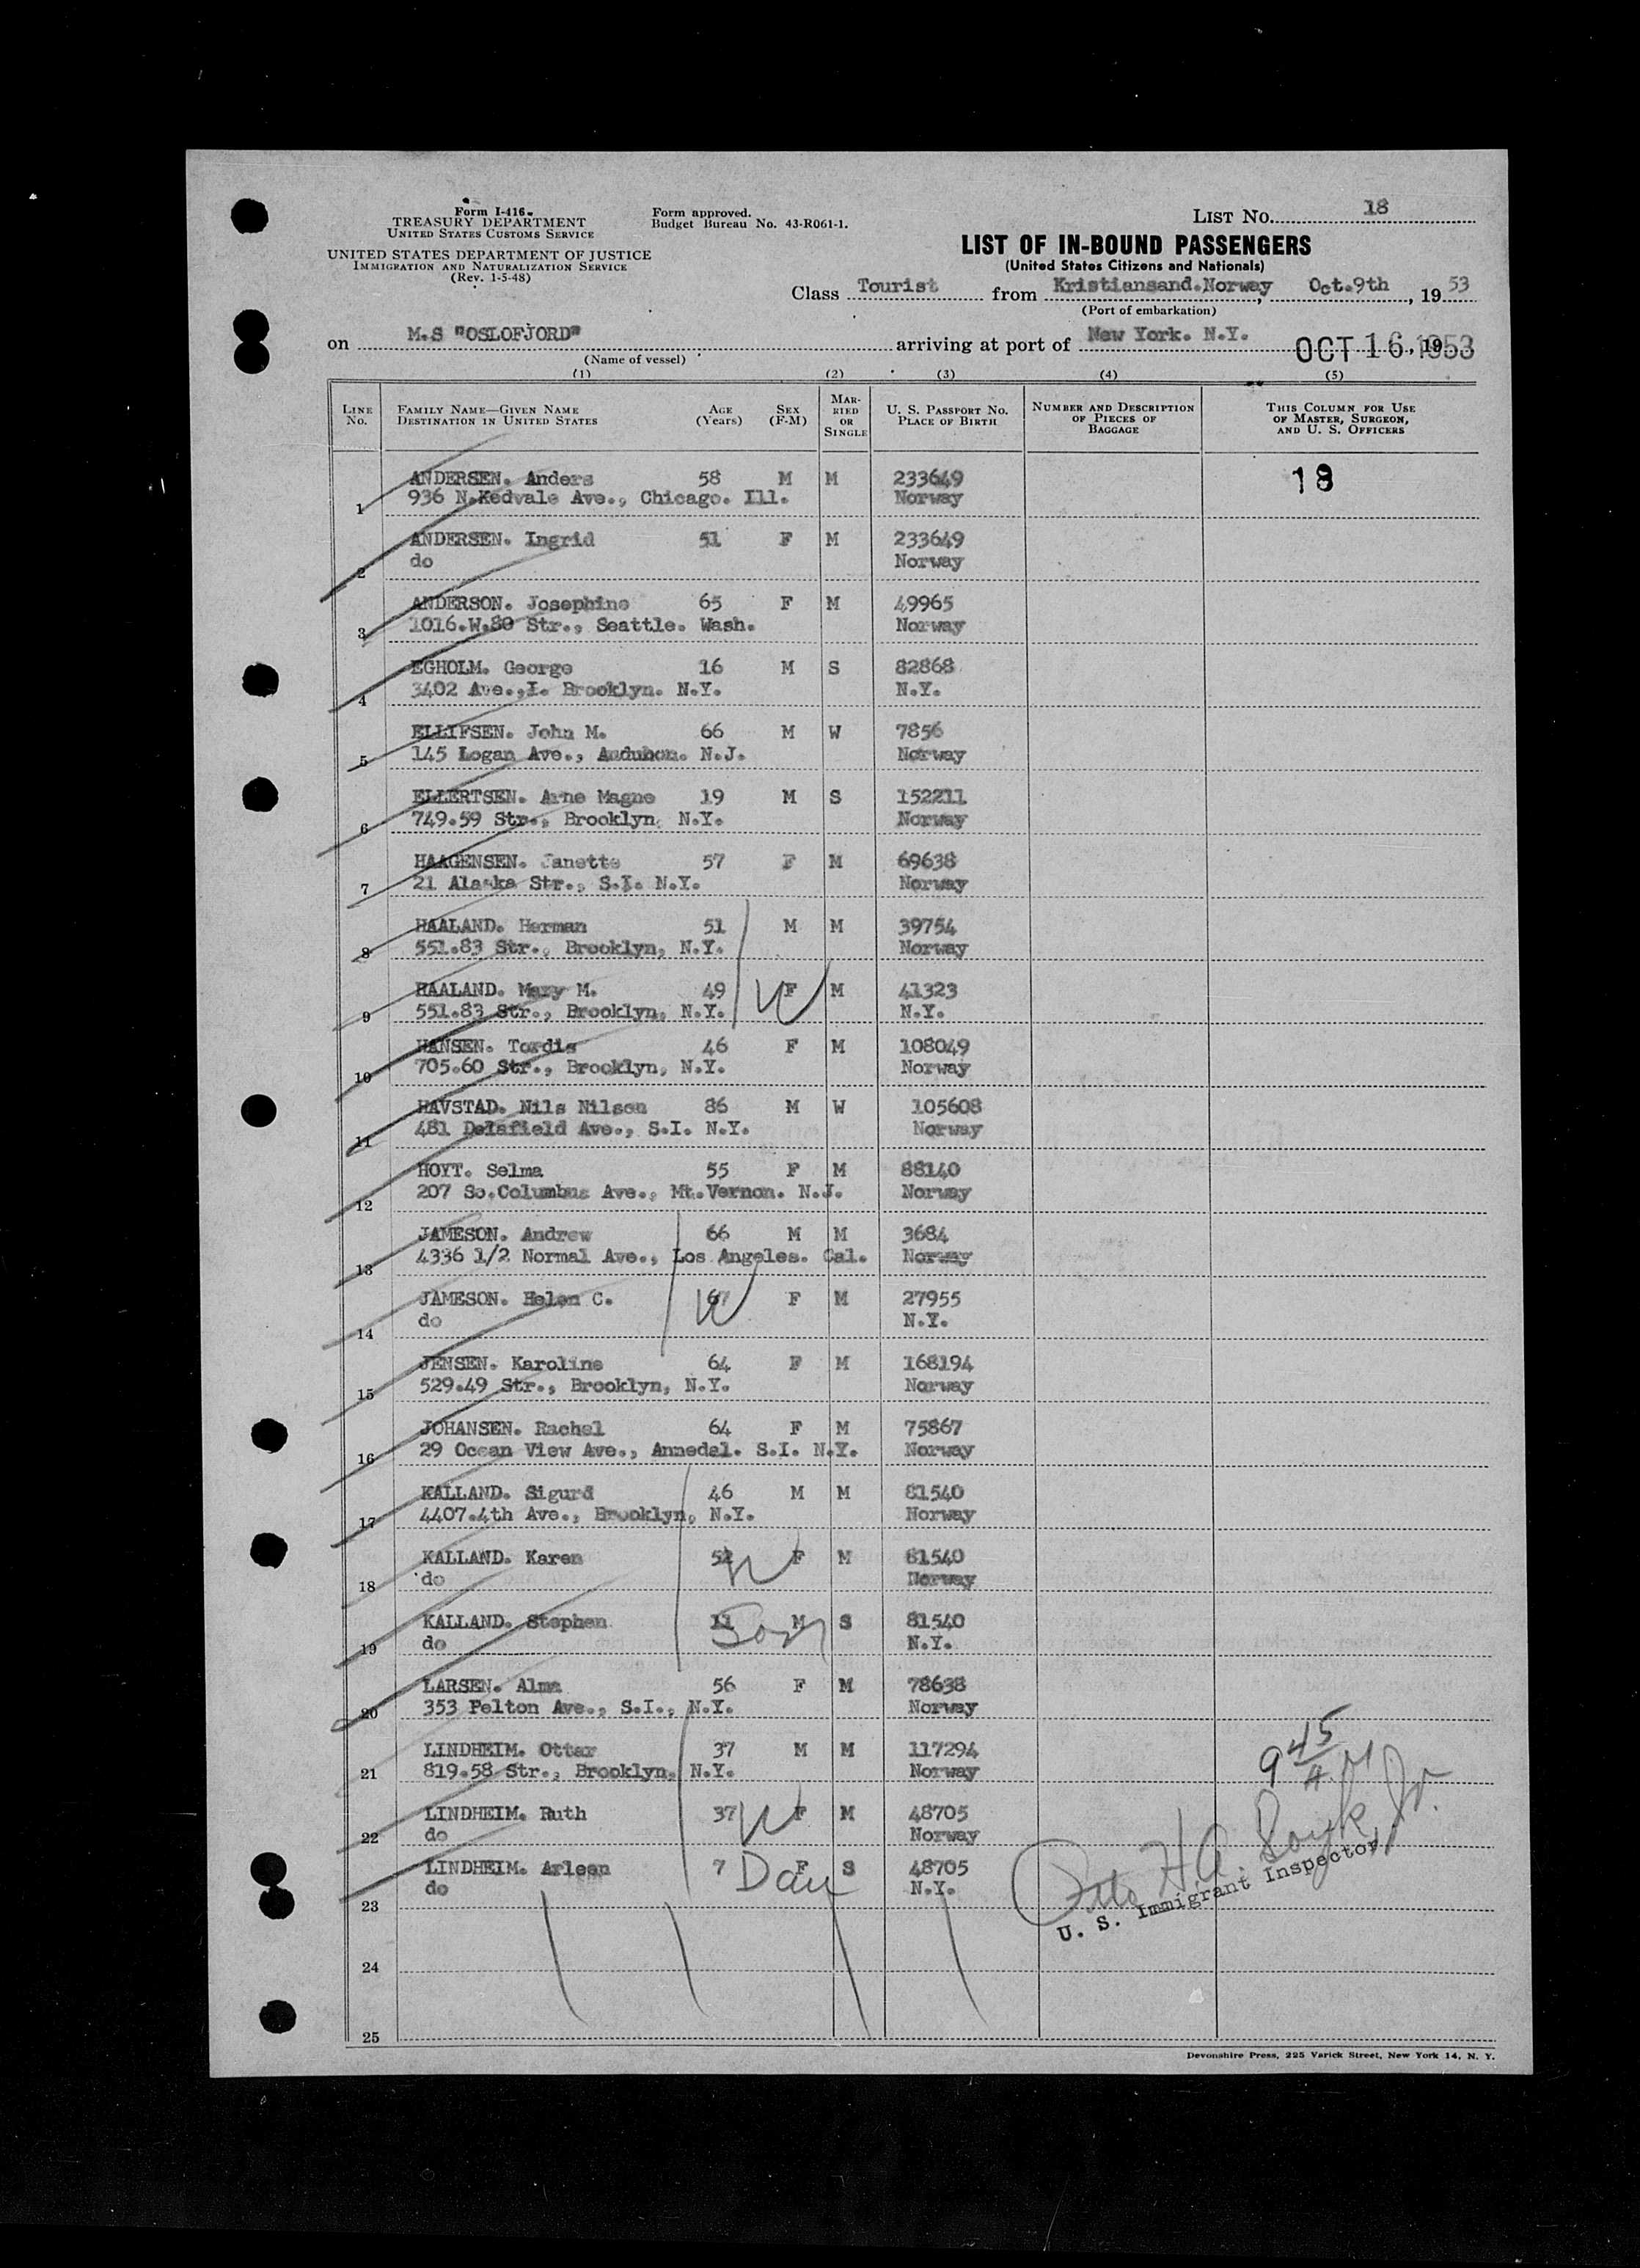 Form I-416
TREASURY DEPARTMENT
UNITED STATES CUSTOMS SERVICE
UNITED STATES DEPARTMENT OF JUSTICE
IMMIGRATION AND NATURALIZATION SERVICE
(Rev. 1-5-48)
Form approved.
Budget Bureau No. 43-R061-1.
LIST No. 18
LIST OF IN-BOUND PASSENGERS
(United States Citizens and Nationals)
Class Tourist from Kristiansand.Norway, Oct.9th, 19 53
(Port of embarkation)
on M.S "OSLOFJORD" arriving at port of New York. N.Y. OCT 16 1953, 19
(Name of vessel)
(1) (2) (3) (4) (5)
LINE No. FAMILY NAME—GIVEN NAME DESTINATION IN UNITED STATES AGE (Years) SEX (F-M) MARRIED OR SINGLE U. S. PASSPORT No. PLACE OF BIRTH NUMBER AND DESCRIPTION OF PIECES OF BAGGAGE THIS COLUMN FOR USE OF MASTER, SURGEON, AND U. S. OFFICERS
ANDERSEN. Anders 58 M M 233649 18
1 936 N.Kedvale Ave., Chicago. Ill. Norway
ANDERSEN. Ingrid 51 F M 233649
2 do Norway
ANDERSON. Josephine 65 F M 49965
3 1016.W.80 Str., Seattle. Wash. Norway
EGHOLM. George 16 M S 82868
4 3402 Ave.,I. Brooklyn. N.Y. N.Y.
ELLIFSEN. John M. 66 M W 7856
5 145 Logan Ave., Audubon. N.J. Norway
ELLERTSEN. Arne Magne 19 M S 152211
6 749.59 Str., Brooklyn, N.Y. Norway
HAAGENSEN. Janette 57 F M 69638
7 21 Alaska Str., S.I. N.Y. Norway
HAALAND. Herman 51 M M 39754
8 551.83 Str., Brooklyn, N.Y. Norway
HAALAND. Mary M. 49 W F M 41323
9 551.83 Str., Brooklyn, N.Y. N.Y.
HANSEN. Tordis 46 F M 108049
10 705.60 Str., Brooklyn, N.Y. Norway
HAVSTAD. Nils Nilsen 86 M W 105608
11 481 Delafield Ave., S.I. N.Y. Norway
HOYT. Selma 55 F M 88140
12 207 So.Columbus Ave., Mt.Vernon. N.J. Norway
JAMESON. Andrew 66 M M 3684
13 4336 1/2 Normal Ave., Los Angeles. Cal. Norway
JAMESON. Helen C. W F M 27955
14 do N.Y.
JENSEN. Karoline 64 F M 168194
15 529.49 Str., Brooklyn, N.Y. Norway
JOHANSEN. Rachel 64 F M 75867
16 29 Ocean View Ave., Annedal. S.I. N.Y. Norway
KALLAND. Sigurd 46 M M 81540
17 4407.4th Ave., Brooklyn, N.Y. Norway
KALLAND. Karen 52 W F M 81540
18 do Norway
KALLAND. Stephen 11 Son M S 81540
19 do N.Y.
LARSEN. Alma 56 F M 78638
20 353 Pelton Ave., S.I., N.Y. Norway
LINDHEIM. Ottar 37 M M 117294
21 819.58 Str., Brooklyn. N.Y. Norway
LINDHEIM. Ruth 37 W F M 48705
22 do Norway
LINDHEIM. Arleen 7 Dau F S 48705
23 do N.Y.
24
25
9 45
U. S. Immigrant Inspector
Devonshire Press, 225 Varick Street, New York 14, N. Y.